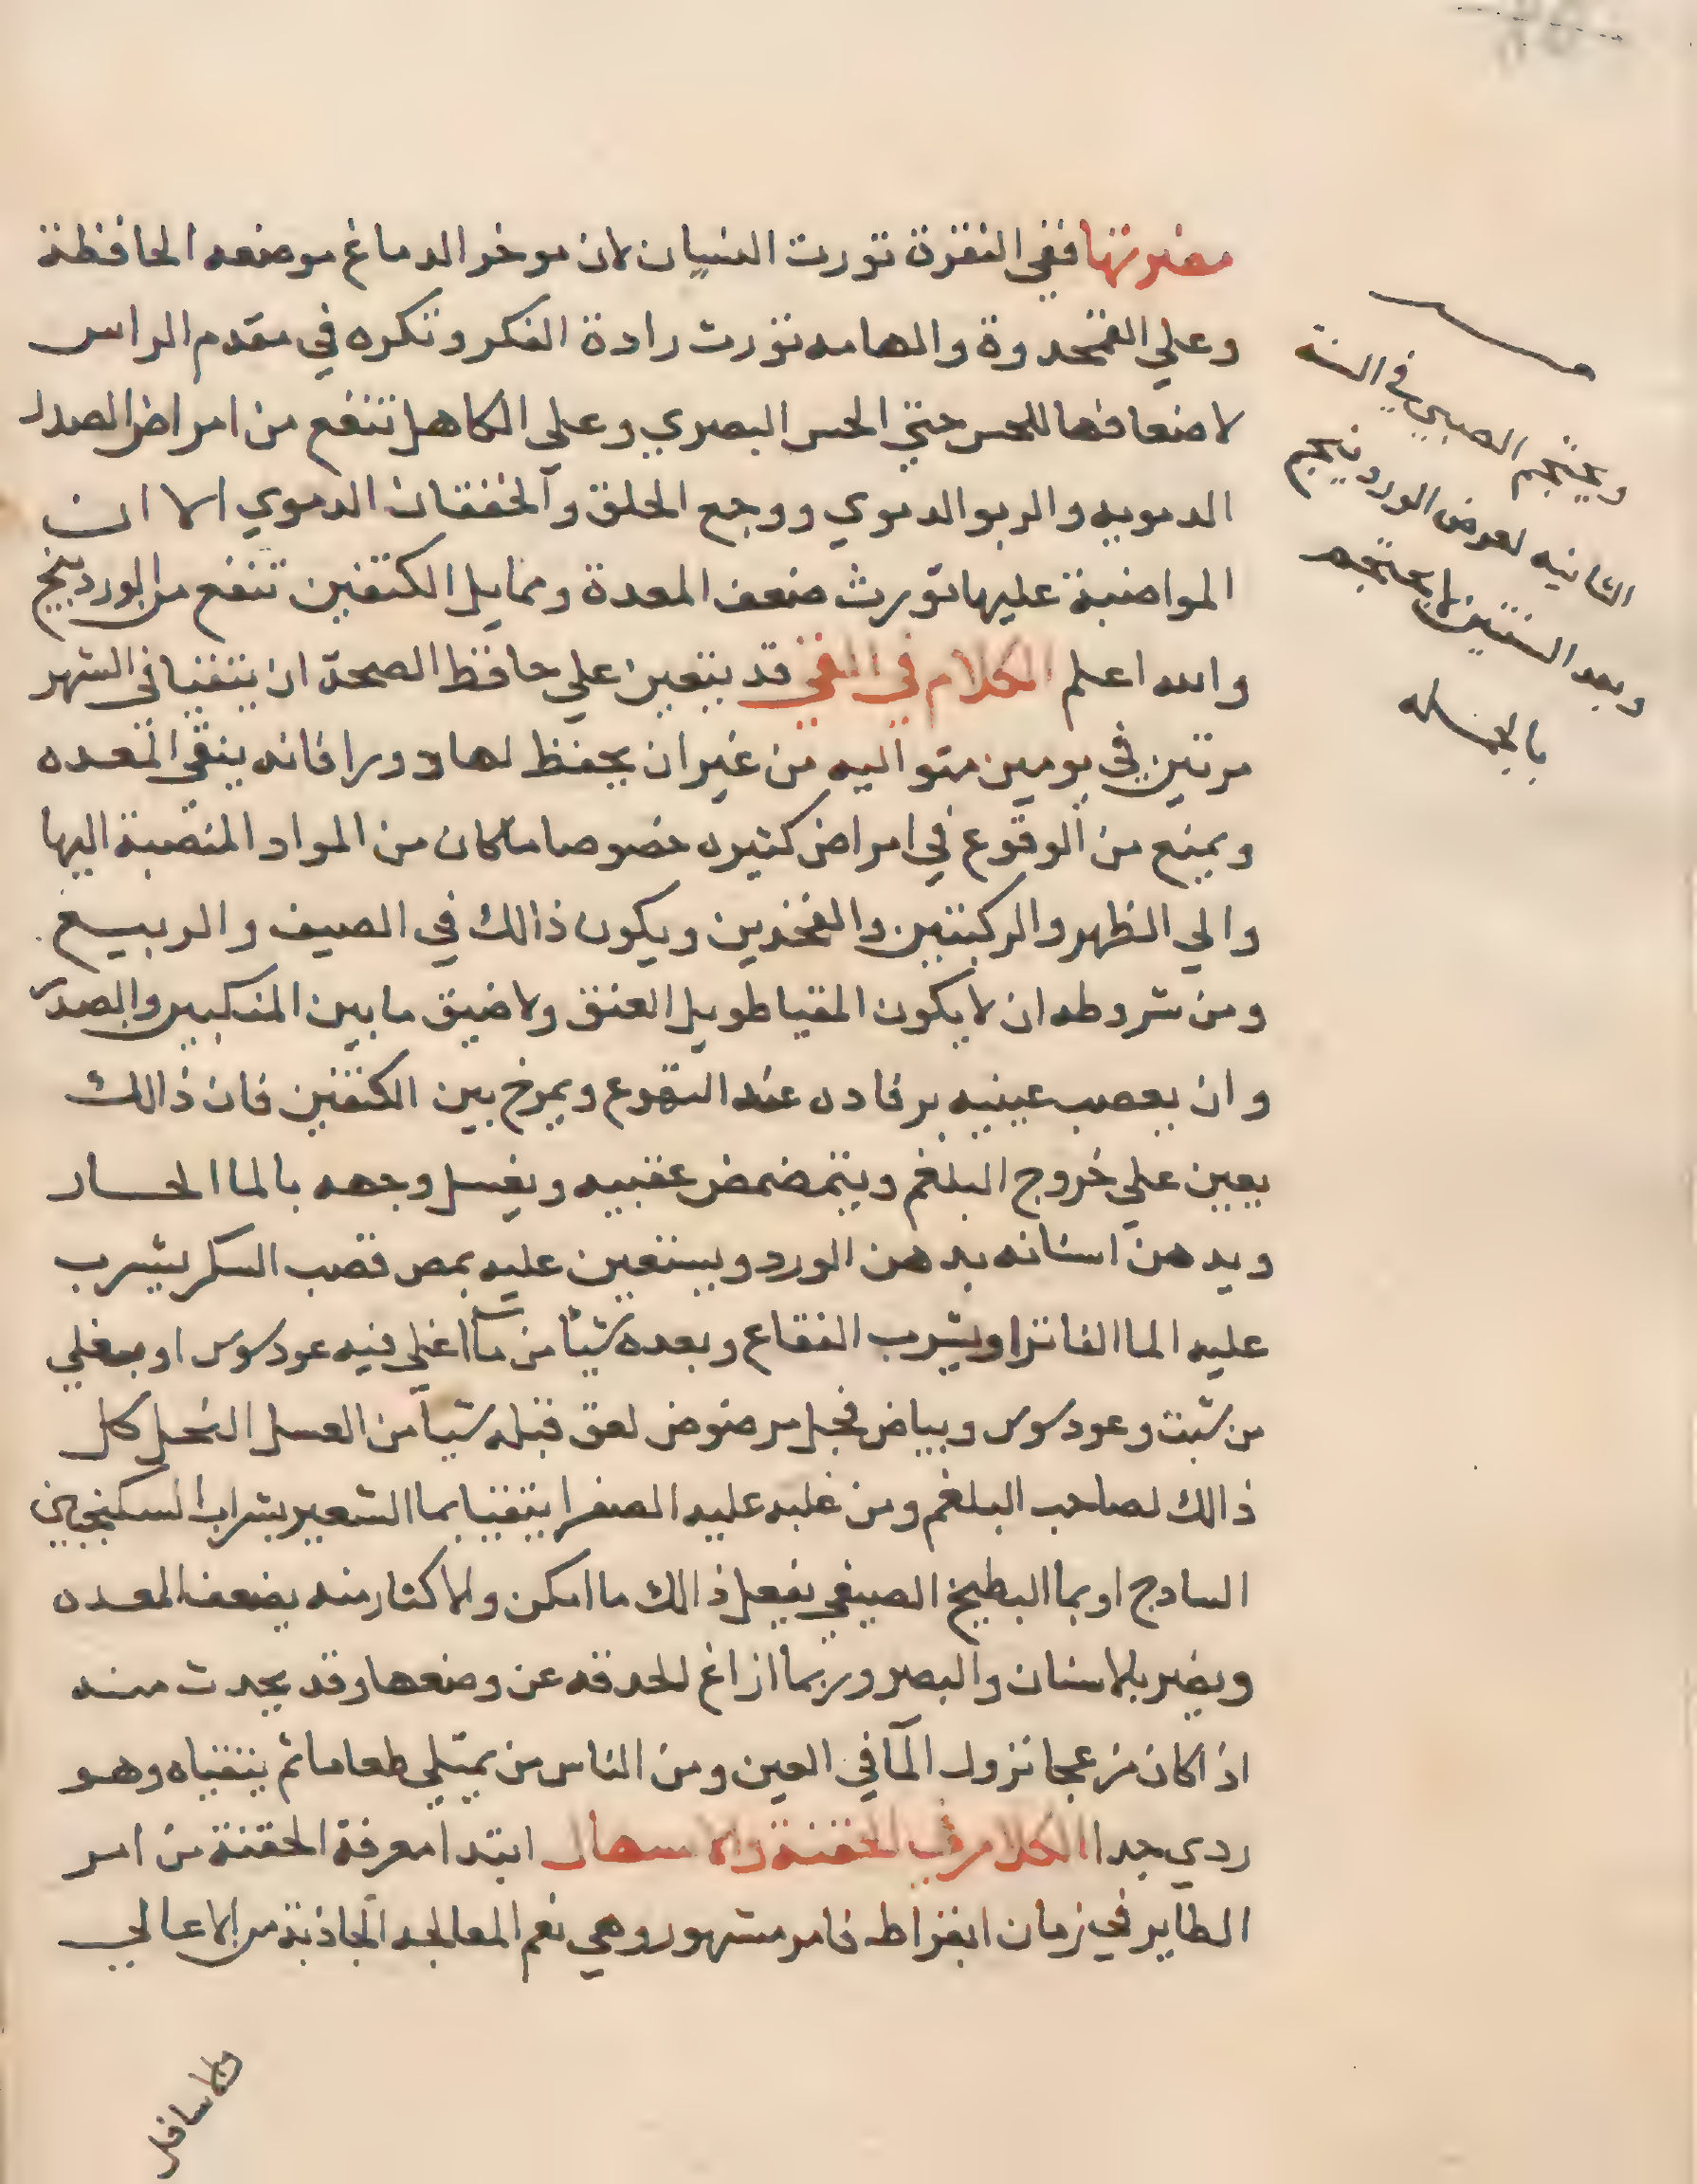 مضرتها ففي النقرة تورت النسيان لان موخر الدماغ موضعه الحافظة
وعلي القمحدوة والهامه تورث رادة الفكر وتكره في مقدم الراس
لاضعافها للحس حتي الحس البصري وعلي الكاهل تنفع من امراض الصدر
الدمويه والربو الدموي ووجع الحلق والخفقان الدموي الا ان
المواضبة عليها تورث ضعف المعدة ومما يلي الكتفين تنفع من
والله اعلم الكلام في القي قد يتعين علي حافظ الصحة ان يتقيا في الشهر
مرتين في يومين متواليه من غير ان يحفظ لها دورا فانه ينقي المعده
ويمنع من الوقوع في امراض كثيره خصوصا ما كان من المواد المنصبة اليها
والي الظهر والركبتين والفخدين ويكون ذالك في الصيف والربيع
ومن شروطه ان لا يكون المقيا طويل العنق ولا ضيق ما بين المنكبين والصدر
وان يعصب عينيه برفاده عند التهوع ويمرخ بين الكتفين فان ذالك
يعين علي خروج البلغم ويتمضمض عقبيه ويغسل وجهه بالما الحار
ويدهن اسنانه بدهن الورد ويستعين عليه بمص قصب السكر يشرب
عليه الما الفاتر او يشرب الفقاع وبعده شيا من مآ اغلي فيه عود سوس او بمغلي
من شبت وعود سوس وبياض فجل مرضوض لعق قبله شيا من العسل النحل كل
ذالك لصاحب البلغم ومن غلبه عليه الصفرا يتقيا بما الشعير بشراب السكنجبين
السادج او بما البطيخ الصيفي يفعل ذالك ما امكن والاكثار منه يضعف المعده
ويضر بالاسنان والبصر وربما ازاغ للحدقه عن وضعها وقد يحدث منه
اذا كان مزعجا نزول المآ في العين ومن الناس من يمتلي طعاما ثم يتقياه وهو
ردي جدا الكلام في الحقنة والاسهال ابتدا معرفة الحقنة من امر
الطاير في زمان ابقراط فامر مشهور وهي نعم المعالجه الجاذبة من الاعالي
ويحتجم الصبي في السنة
الثانيه لعوض
وبعد السنتين لا يحتجم
بالجمله